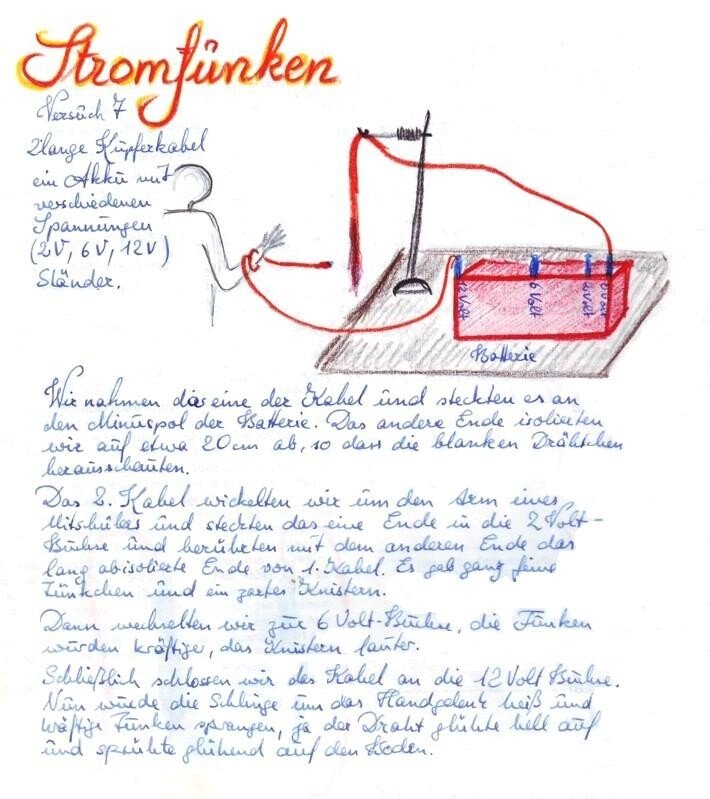 Stromfunken
Versuch 7
2 lange Kupferkabel
ein Akku mit
verschiedenen
Spannungen
(2V, 6V, 12V)
Ständer.
12 Volt
6 Volt
2 Volt
0 Volt
Batterie
Wir nahmen das eine der Kabel und steckten es an
den Minuspol der Batterie. Das andere Ende isolierten
wir auf etwa 20cm ab, so dass die blanken Drähtchen
herausschauten.
Das 2. Kabel wickelten wir um den Arm eines
Mitschülers und steckten das eine Ende in die 2 Volt-
Buchse und berührten mit dem anderen Ende das
lang abisolierte Ende von 1. Kabel. Es gab ganz feine
Fünkchen und ein zartes Knistern.
Dann wechselten wir zur 6 Volt-Buchse, die Funken
wurden kräftiger, das Knistern lauter.
Schließlich schlossen wir das Kabel an die 12 Volt Buchse.
Nun wurde die Schlinge um das Handgelenk heiß und
kräftige Funken sprangen, ja der Draht glühte hell auf
und sprühte glühend auf den Boden.